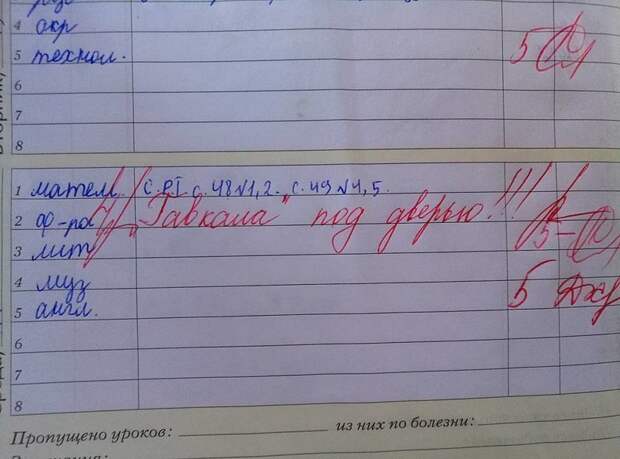 4 окр
5 технол. 5
6
7
8
1 матем. С. РТ с. 48 №1,2. с. 49 №4,5.
2 ф-ра "Гавкала" под дверью!!! 5-
3 лит
4 муз
5 англ. 5
6
7
8
Пропущено уроков: из них по болезни: